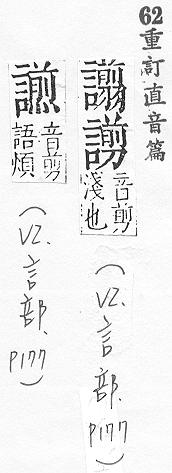 62重訂直音篇
譾謭音剪
淺也
（VZ.言部.P177）
音剪
語煩
（VZ.言部.P177）